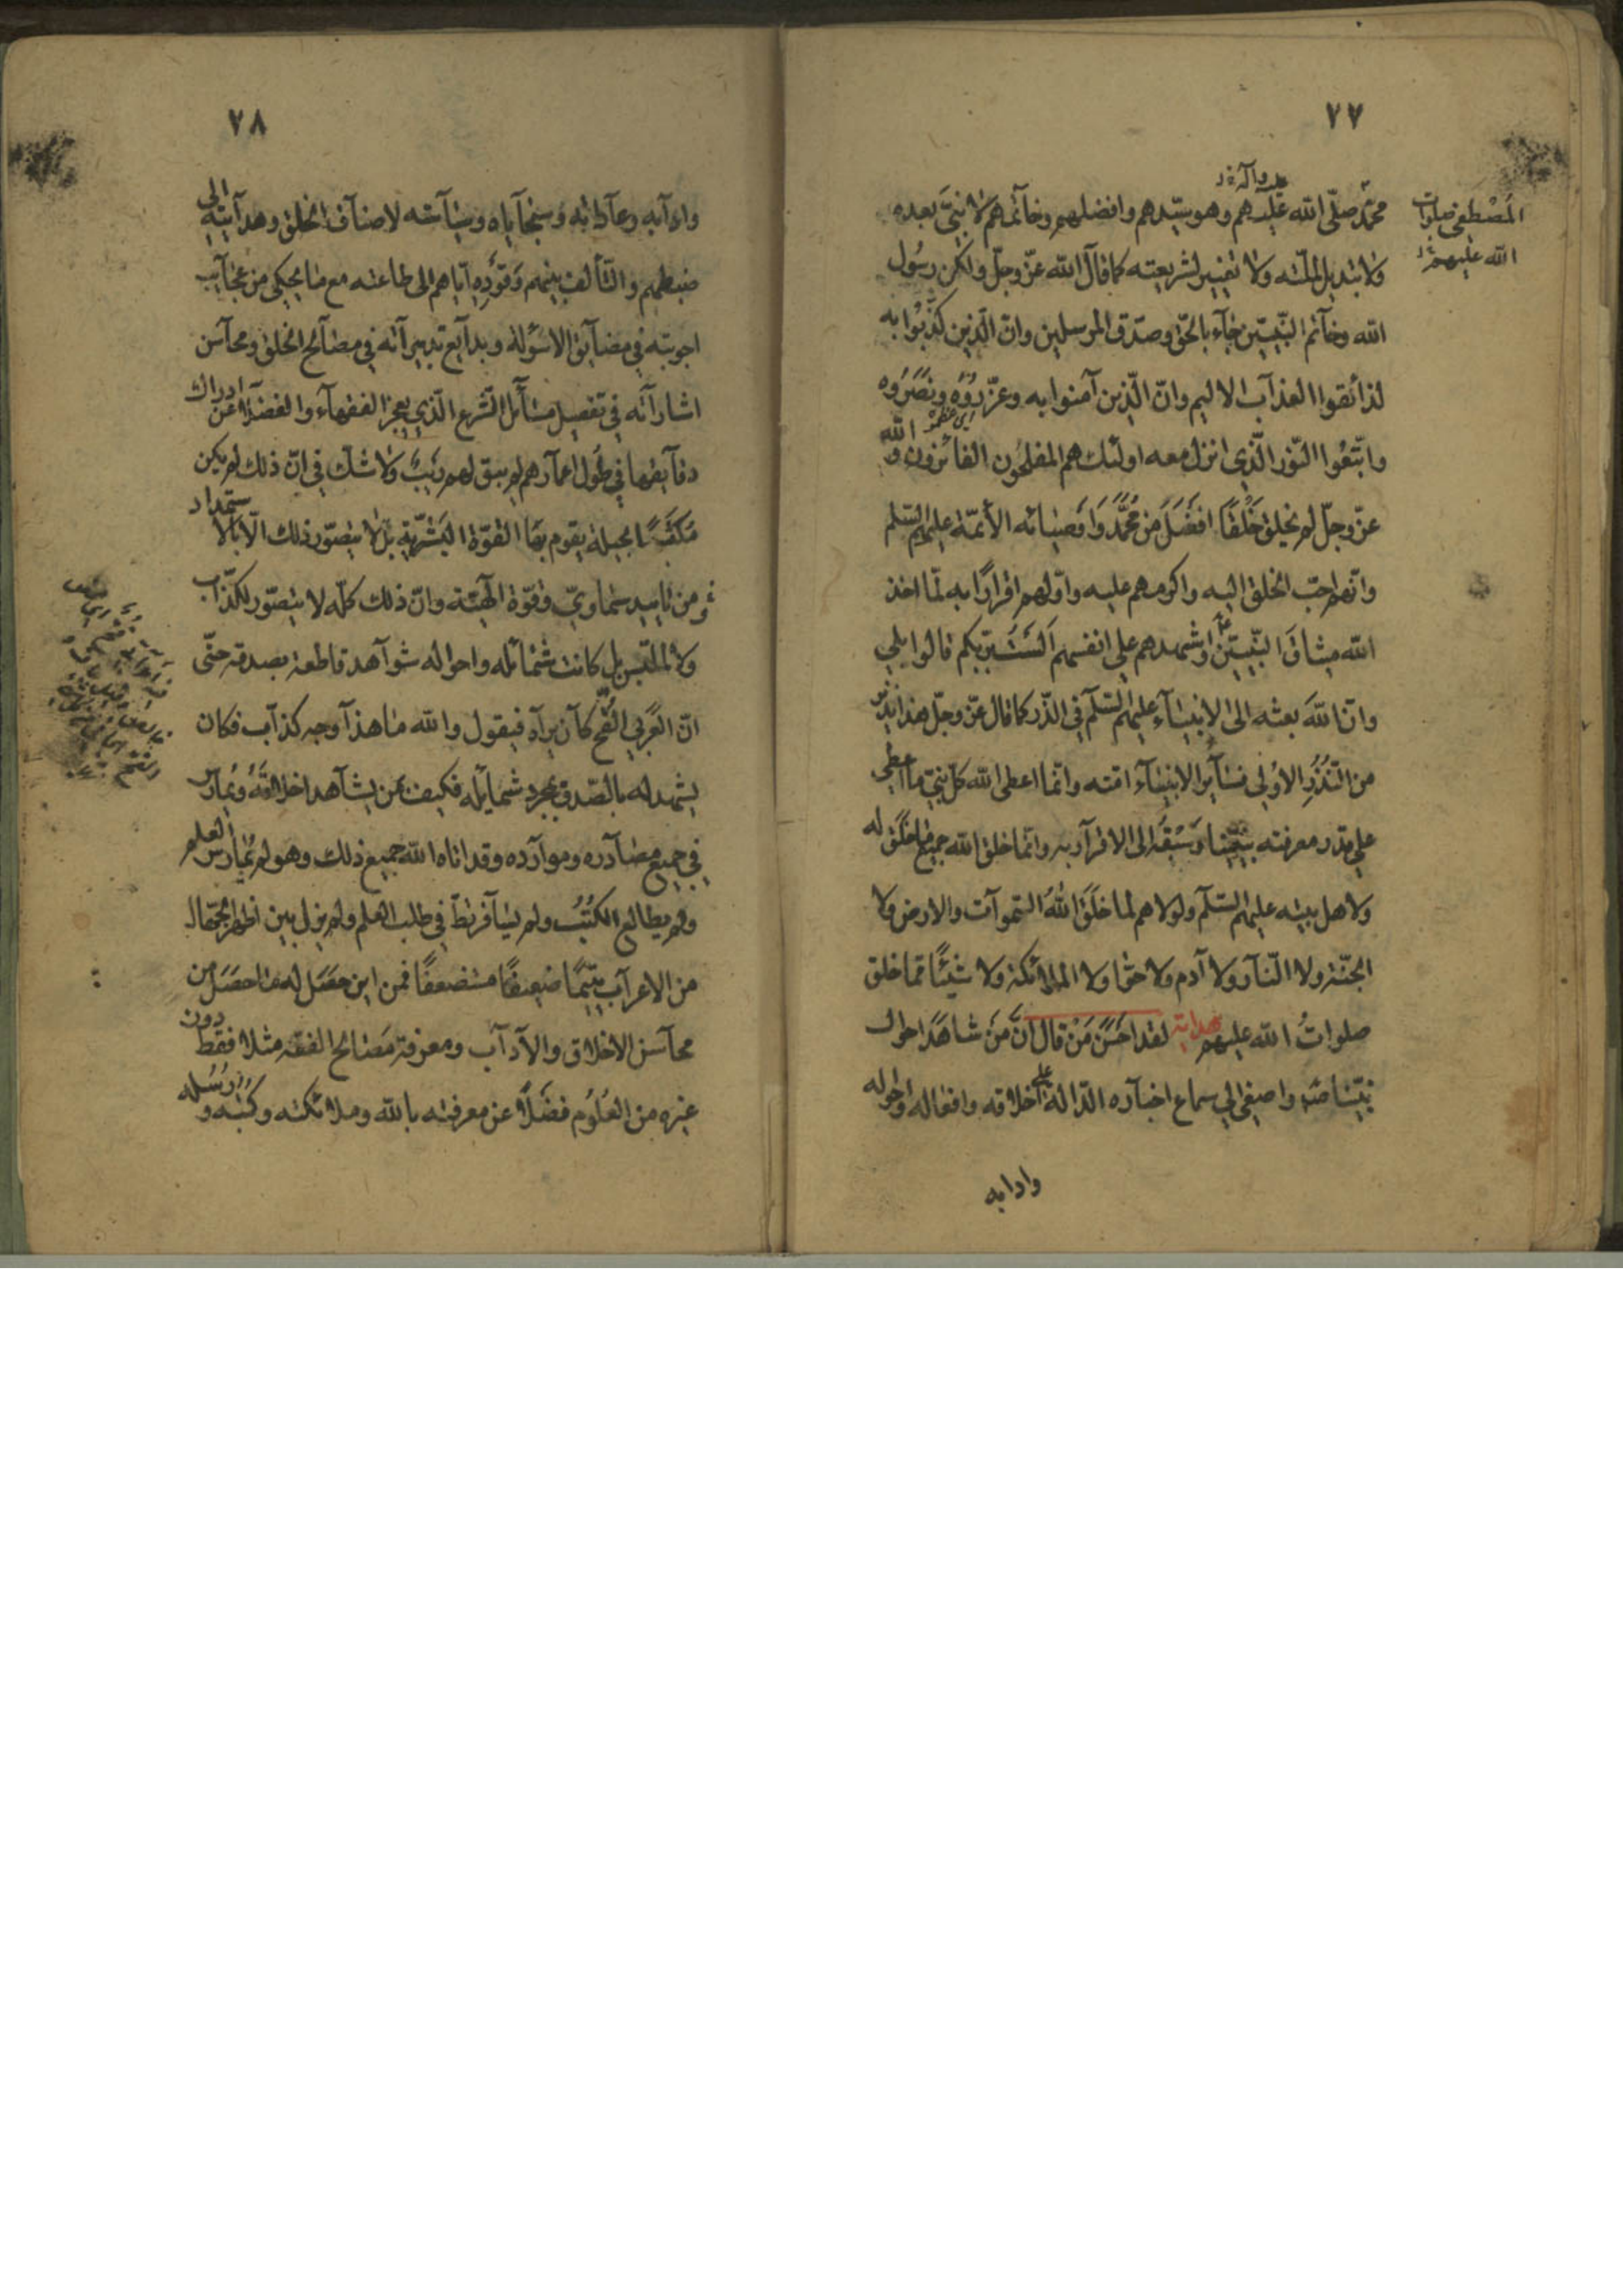 ٧٧
المصطفى صلوات
الله عليهم
محمّد صلّى الله عليه وآله وهو سيّدهم وافضلهم وخاتمهم لا نبيّ بعده
ولا تبديل لملّته ولا تغيير لشريعته كما قال الله عزّ وجلّ ولكن رسول
الله وخاتم النّبيّين جاء بالحقّ وصدّق المرسلين وانّ الّذين كذّبوا به
لذائقوا العذاب الاليم وانّ الّذين آمنوا به وعزّروه ونصروه
واتّبعوا النّور الّذي انزل معه اولئك هم المفلحون الفائزون والله
عزّ وجلّ لم يخلق خلقًا افضل من محمّد واوصيائه الأئمّة عليهم السّلم
وانّهم احبّ الخلق اليه واكرمهم عليه واوّلهم اقرارًا به لمّا اخذ
الله ميثاق النّبيّين واشهدهم على انفسهم الست بربّكم قالوا بلى
وانّ الله بعثه الى الانبياء عليهم السّلم في الذّر كما قال عزّ وجلّ هذا نذير
من النّذر الاولى فسائر الانبياء امّته وانّما اعطى الله كلّ نبيّ ما اعطى
على قدر معرفته بنبيّنا وسبقه الى الاقرار به وانّما خلق الله جميع ما خلق له
ولاهل بيته عليهم السّلم ولولاهم لما خلق الله السّموات والارض ولا
الجنّة ولا النّار ولا آدم ولا حوّا ولا الملائكة ولا شيئًا ممّا خلق
صلوات الله عليهم هداية لقد احسن من قال انّ من شاهد احوال
نبيّنا ص واصغى الى سماع اخباره الدّالة على اخلاقه وافعاله واحواله
وادابه
٧٨
وادابه وعاداته وسجاياه وسياسته لاصناف الخلق وهدايته الى
ضبطهم والتّألف بينهم وقوده ايّاهم الى طاعته مع ما يحكى من عجائب
اجوبته في مضايق الاسؤلة وبدايع تدبيراته في مصالح الخلق ومحاسن
اشاراته في تفصيل مسائل الشّرع الّذي يعجز الفقهاء والفضلاء عن ادراك
دقايقها في طول اعمارهم لم يبق لهم ريب ولا شكّ في انّ ذلك لم يكن
مكتسبًا بحيلة يقوم بها القوّة البشريّة بل لا يتصوّر ذلك الّا بالاستمداد
من تاييد سماويّ وقوّة الهيّة وانّ ذلك كلّه لا يتصوّر لكذّاب
ولا لملبّس بل كانت شمائله واحواله شواهد قاطعة بصدقه حتّى
انّ العربي القحّ كان يراه فيقول والله ما هذا وجه كذاب فكان
يشهد له بالصّدق بمجرد شمايله فكيف بمن يشاهد اخلاقه ويمارس
في جميع مصادره وموارده وقد اتاه الله جميع ذلك وهو لم يمارس العلم
ولم يطالع الكتب ولم يسافر قطّ في طلب العلم ولم يزل بين اظهر الجهّال
من الاعراب يتيمًا ضعيفًا مستضعفًا فمن اين حصل له ما حصل من
محاسن الاخلاق والآداب ومعرفة مصالح الفقه مثلا فقط دون
غيره من العلوم فضلًا عن معرفته بالله وملائكته وكتبه ورسله